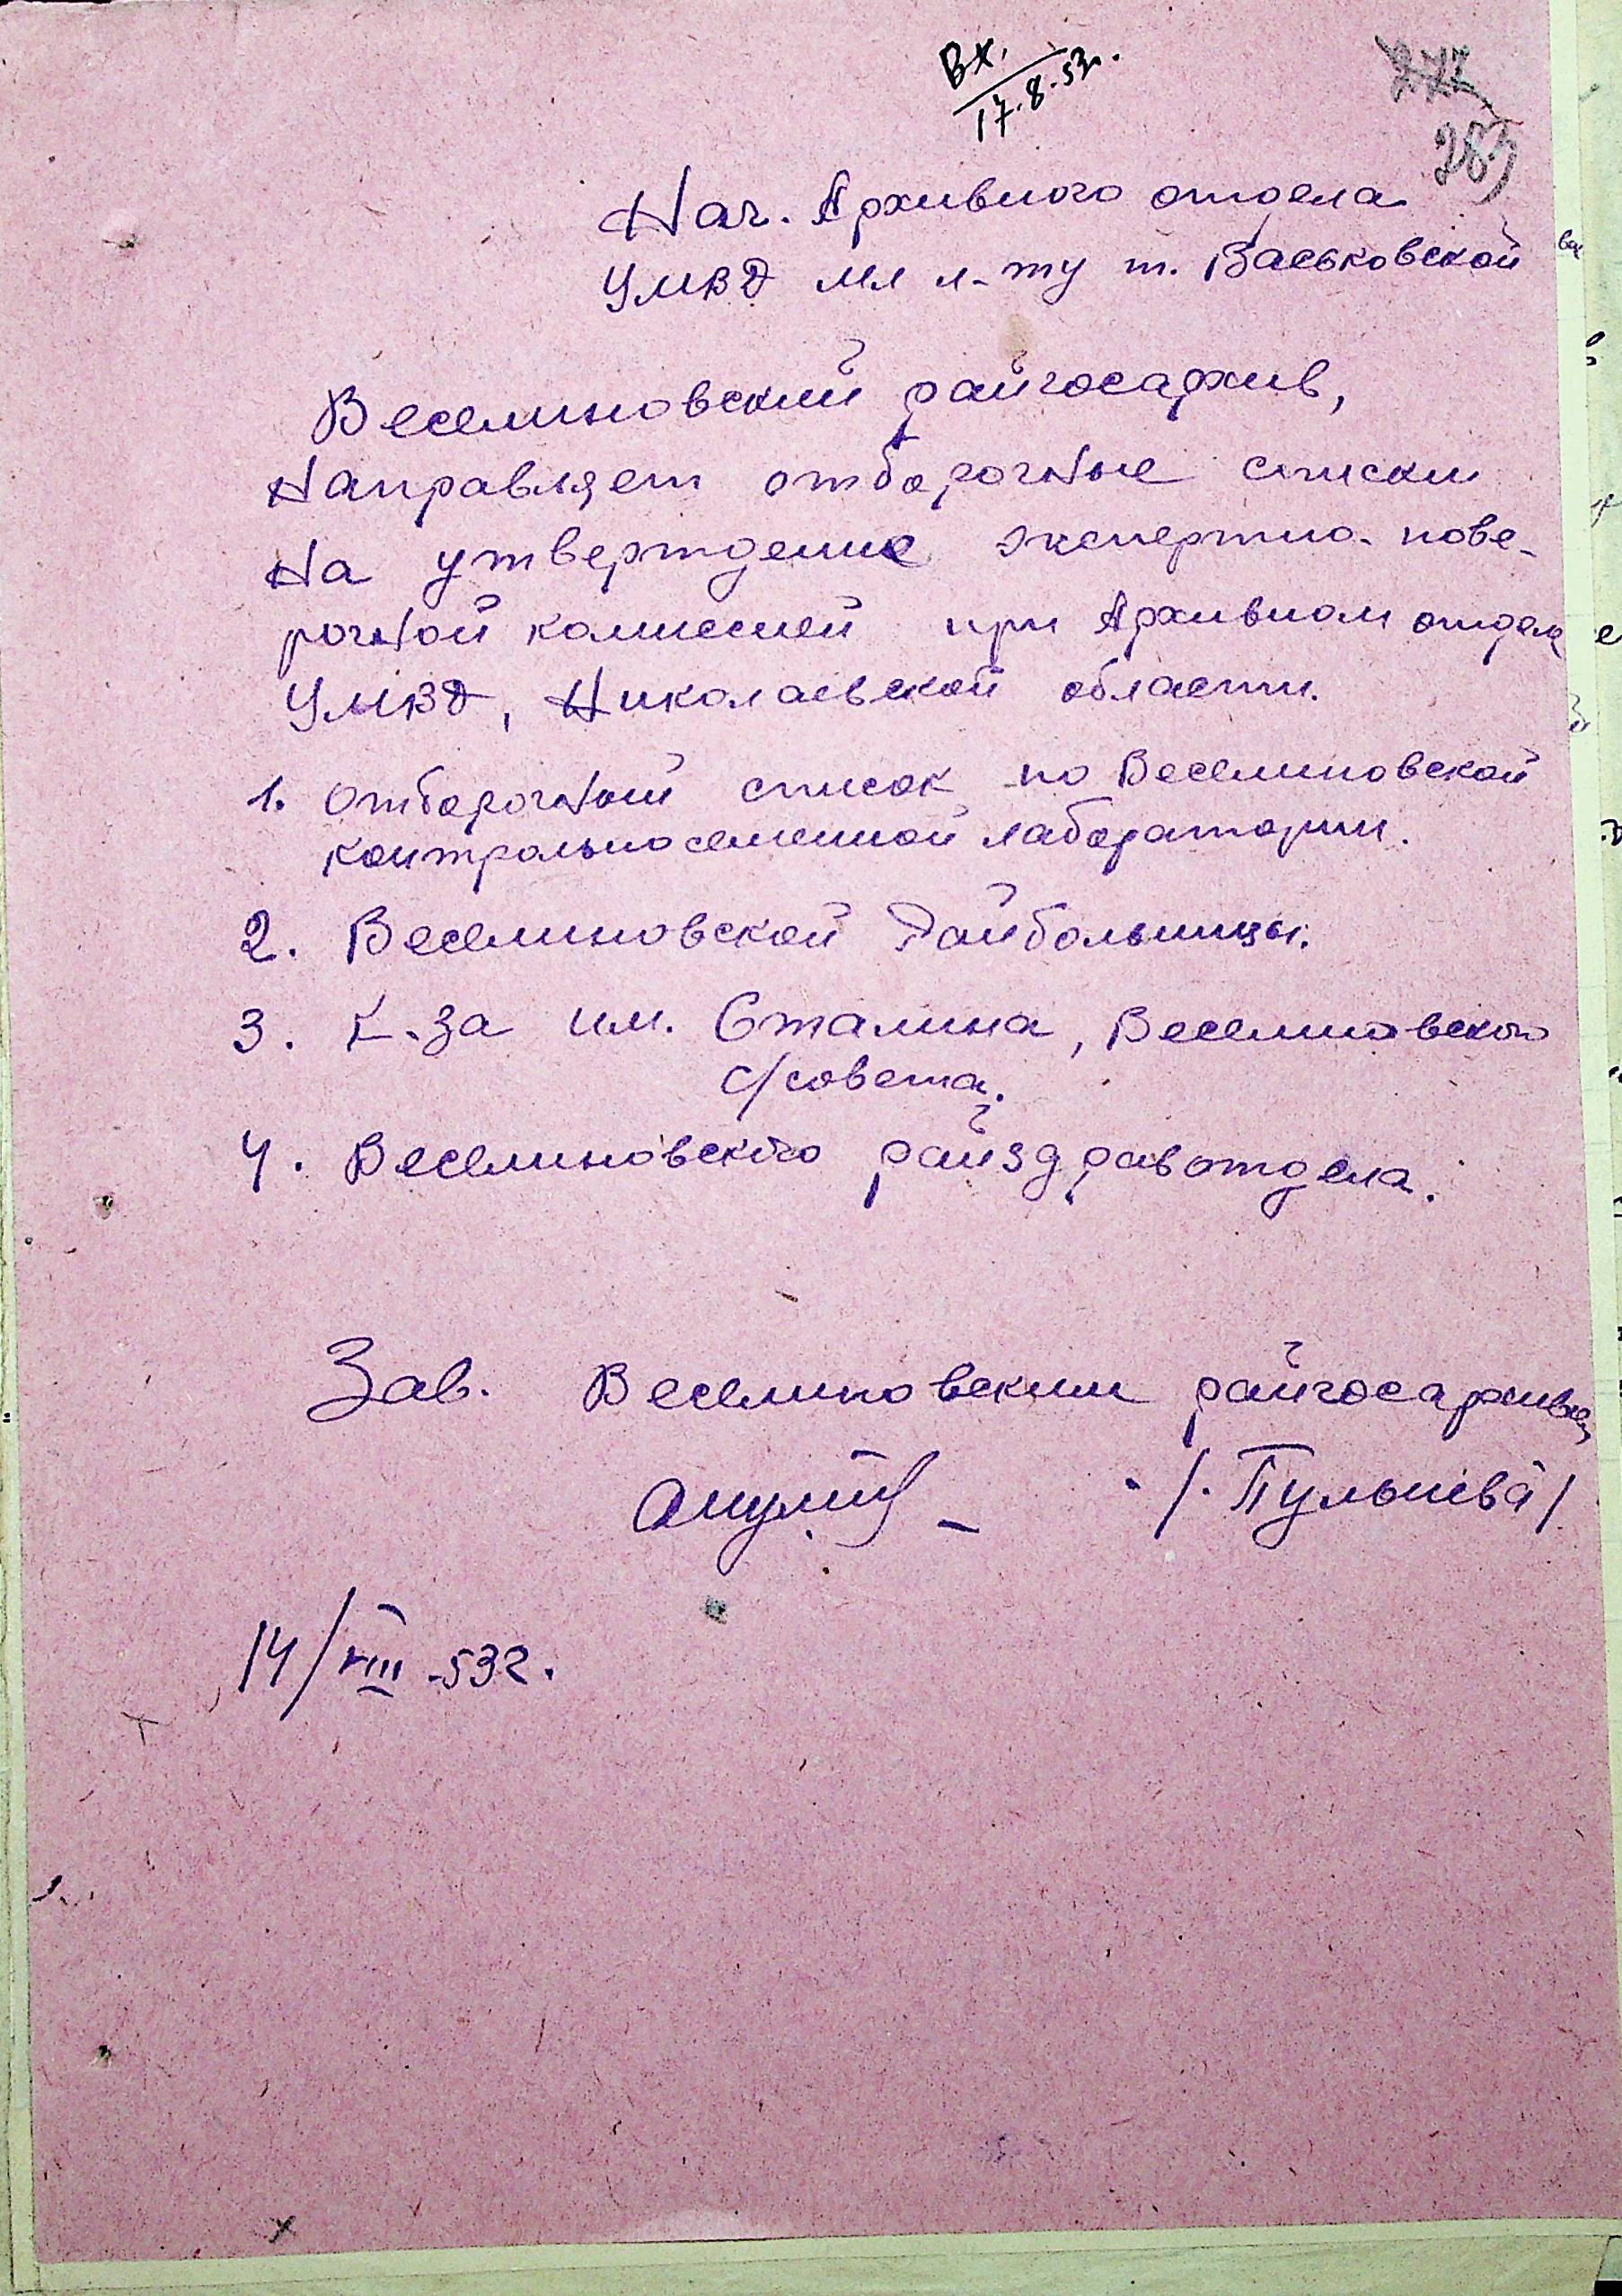 Вх.
17.8.53г.
283
Нач. Архивного отдела
УМВД мл л-ту т. Васьковской
Веселиновский райгосархив,
направляет отборочные списки
на утверждение экспертно-пове-
рочной комиссией при Архивном отделе
УМВД, Николаевской области.
1. Отборочный список по Веселиновской
контрольносеменной лаборатории.
2. Веселиновской Райбольницы.
3. К-за им. Сталина, Веселиновского
с/совета.
4. Веселиновского райздравотдела.
Зав. Веселиновским райгосархивом
/Пульнева/
14/VIII-53г.